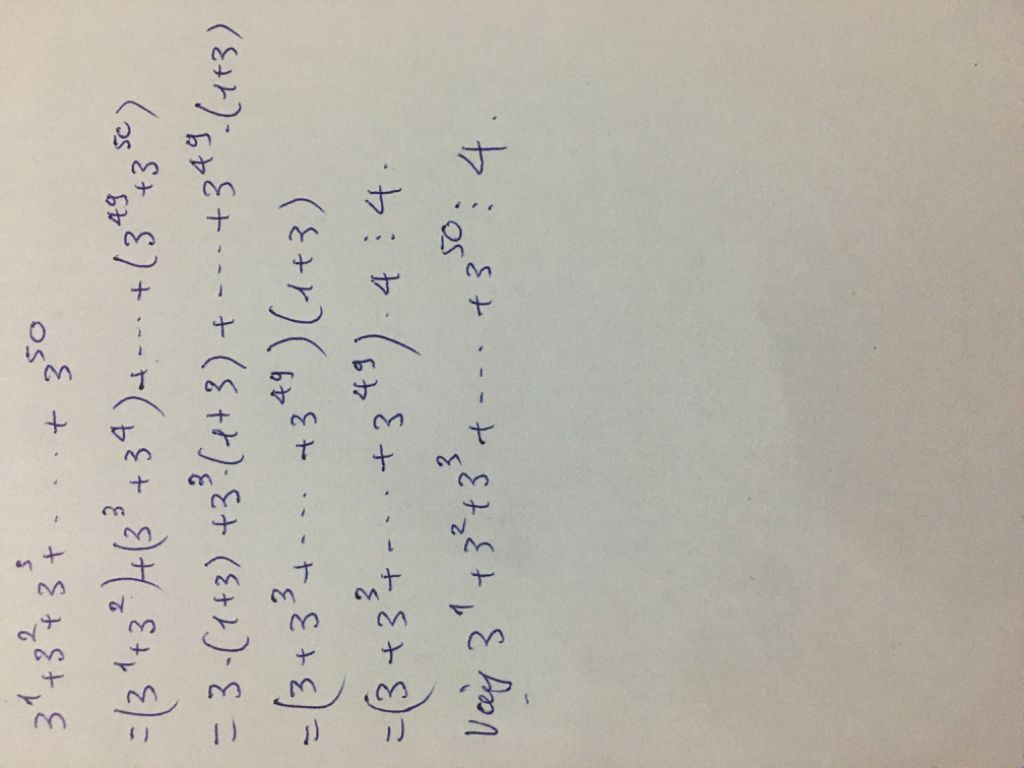 3¹+3²+3³+....+3⁵⁰
=(3¹+3²)+(3³+3⁴)+....+(3⁴⁹+3⁵⁰)
=3.(1+3)+3³.(1+3)+....+3⁴⁹.(1+3)
=(3+3³+....+3⁴⁹)(1+3)
=(3+3³+....+3⁴⁹).4⋮4.
Vậy 3¹+3²+3³+....+3⁵⁰⋮4.